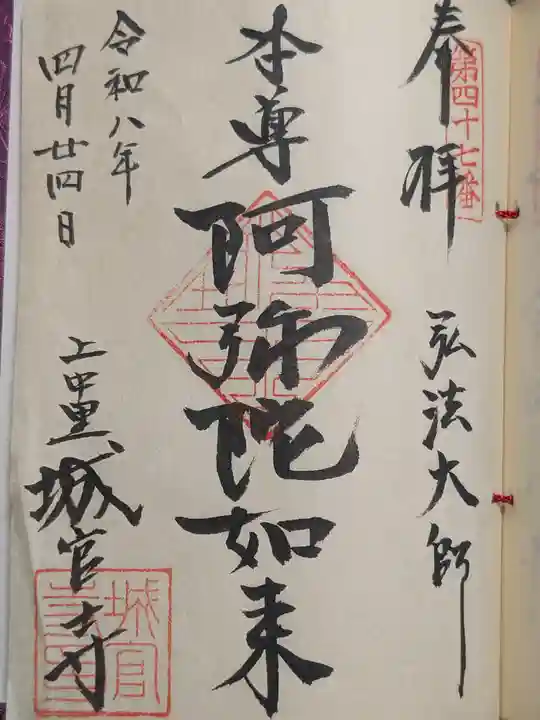 奉拝
第四十七番
弘法大師
本尊
阿弥陀如来
令和八年
四月廿四日
上中里
城官寺
城官
寺